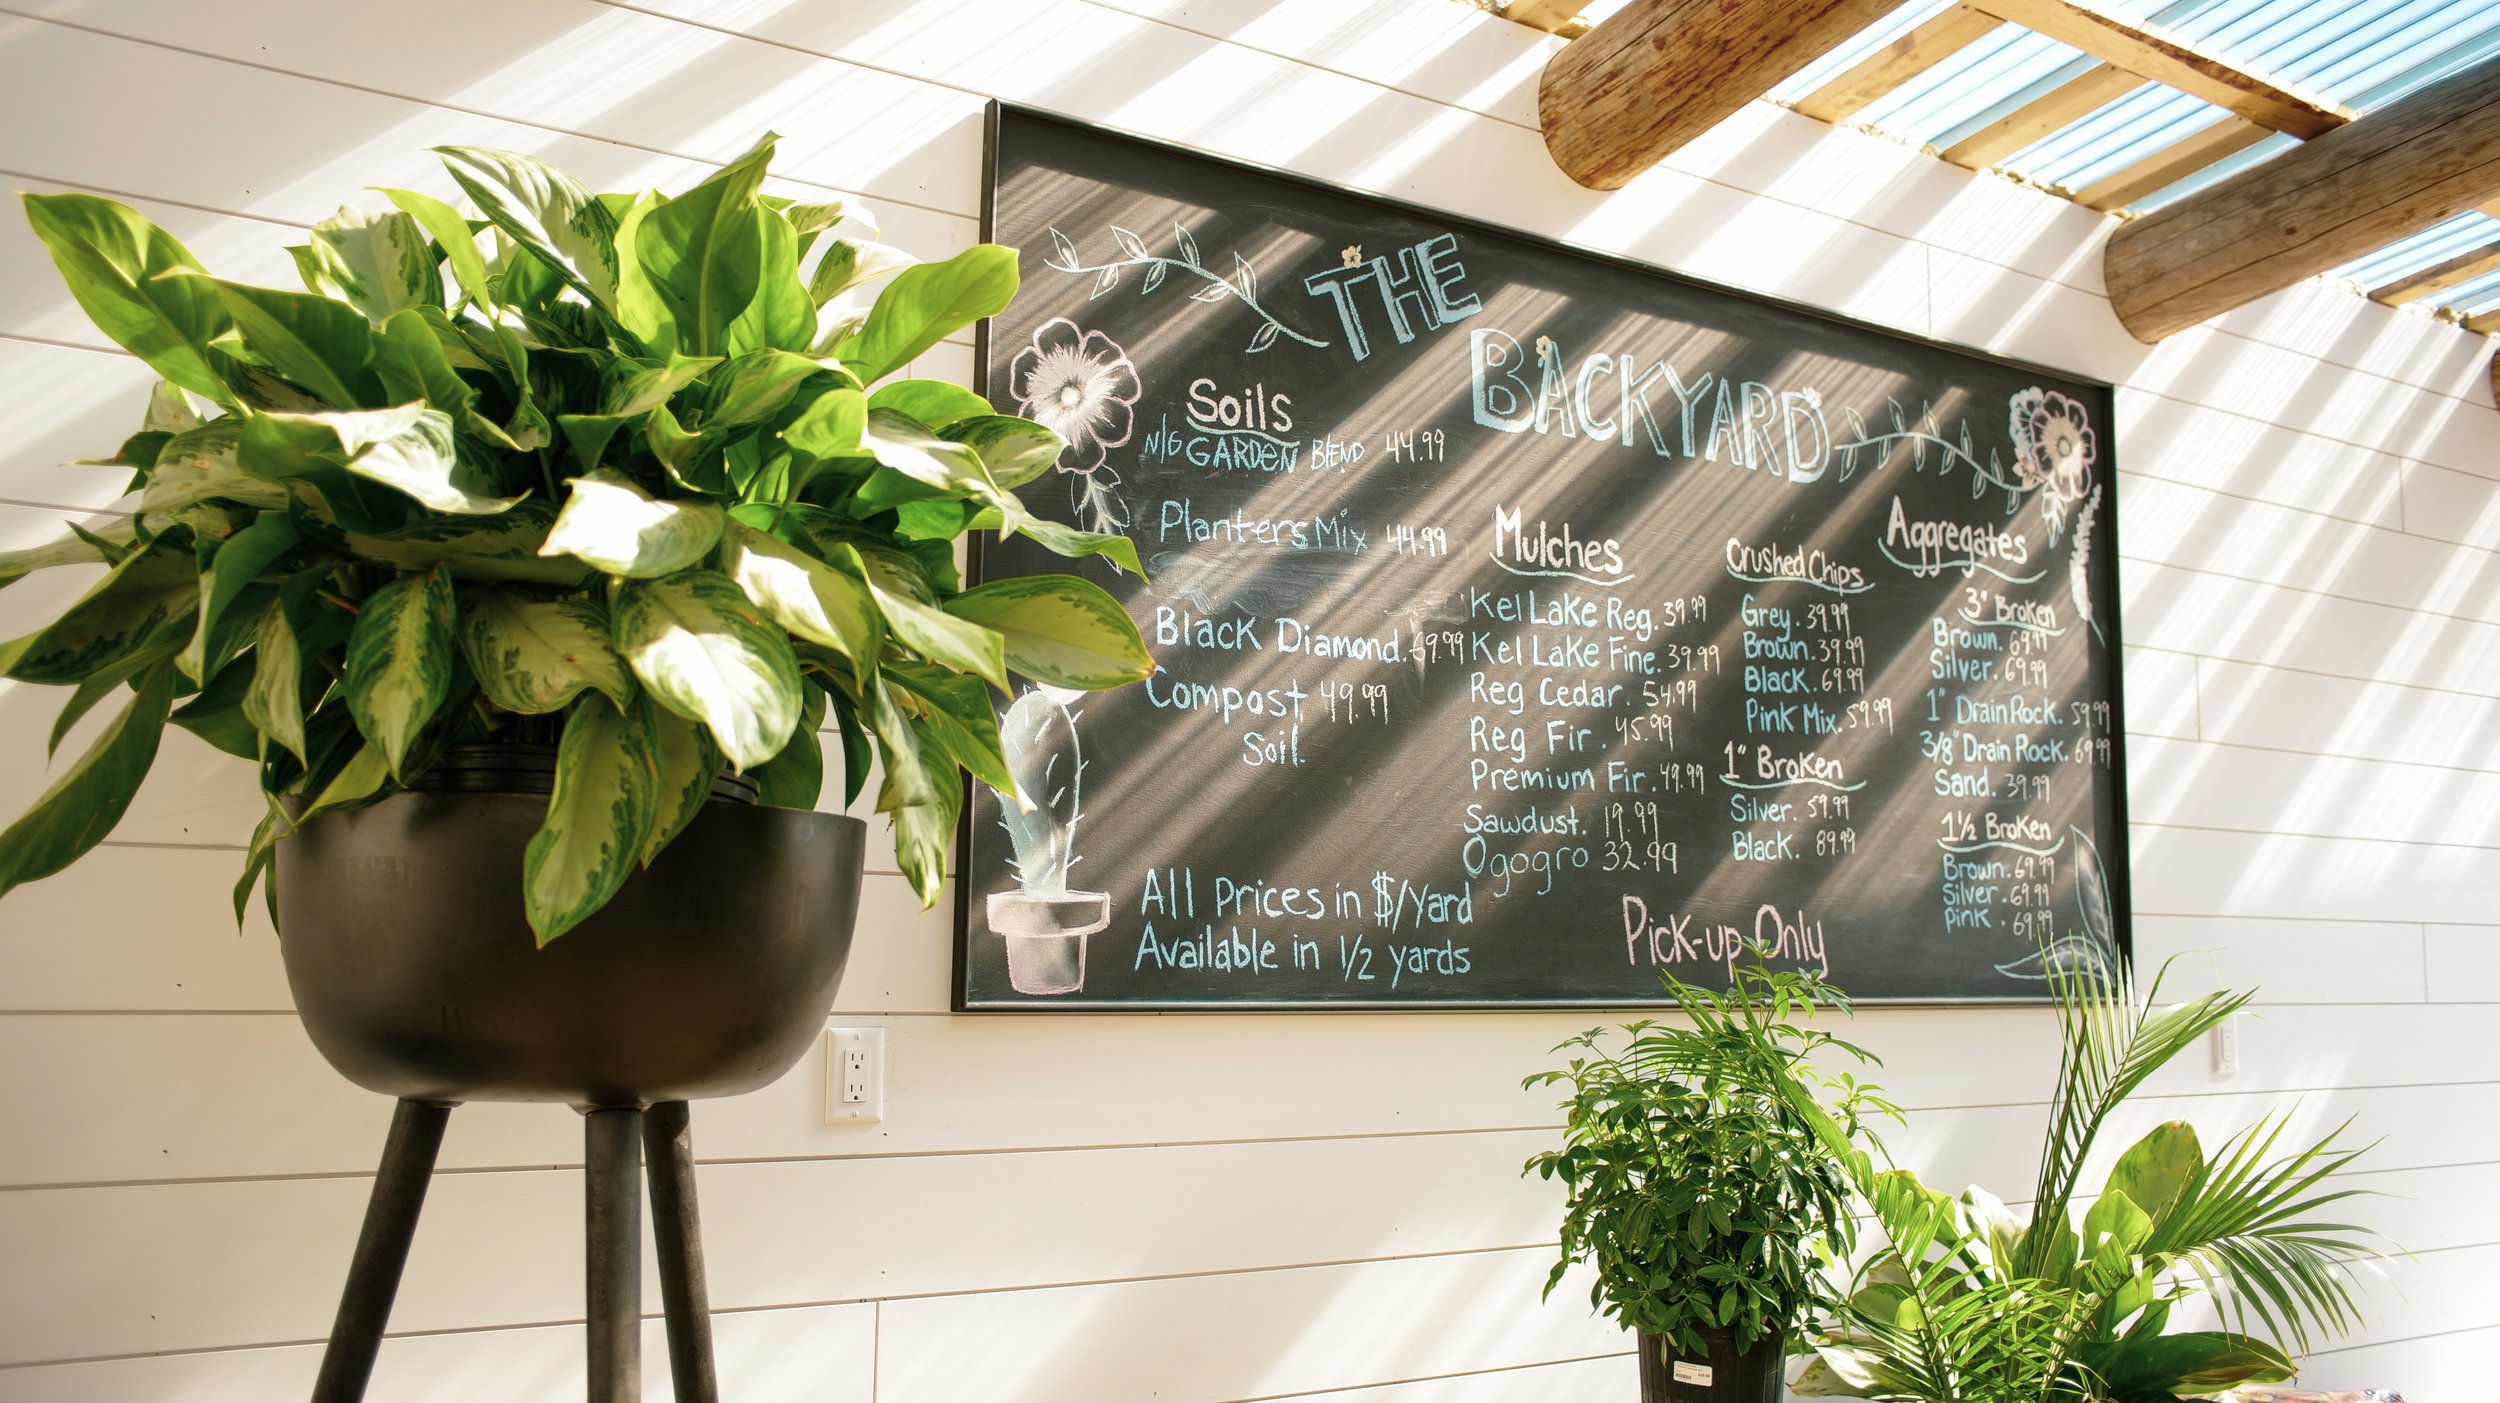 THE
BACKYARD
Soils
N/G GARDEN BLEND 44.99
Planters Mix 44.99
Black Diamond. 69.99
Compost 49.99
Soil.
All Prices in $/Yard
Available in 1/2 yards
Mulches
Kel Lake Reg. 39.99
Kel Lake Fine. 39.99
Reg Cedar. 54.99
Reg Fir. 45.99
Premium Fir. 49.99
Sawdust. 19.99
Ogogro 32.99
Crushed Chips
Grey. 39.99
Brown. 39.99
Black. 69.99
Pink Mix. 59.99
1" Broken
Silver. 59.99
Black. 89.99
Pick-up Only
Aggregates
3" Broken
Brown. 69.99
Silver. 69.99
1" Drain Rock. 59.99
3/8" Drain Rock. 69.99
Sand. 39.99
1 1/2 Broken
Brown. 69.99
Silver. 69.99
Pink. 69.99